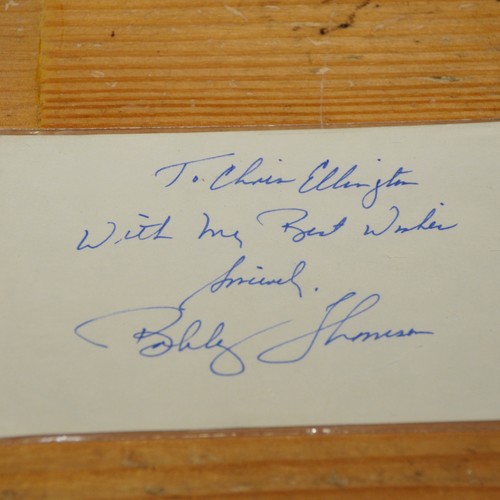 To. Chris Ellington
With My Best Wishes
Sincerely.
Bobby Thomson